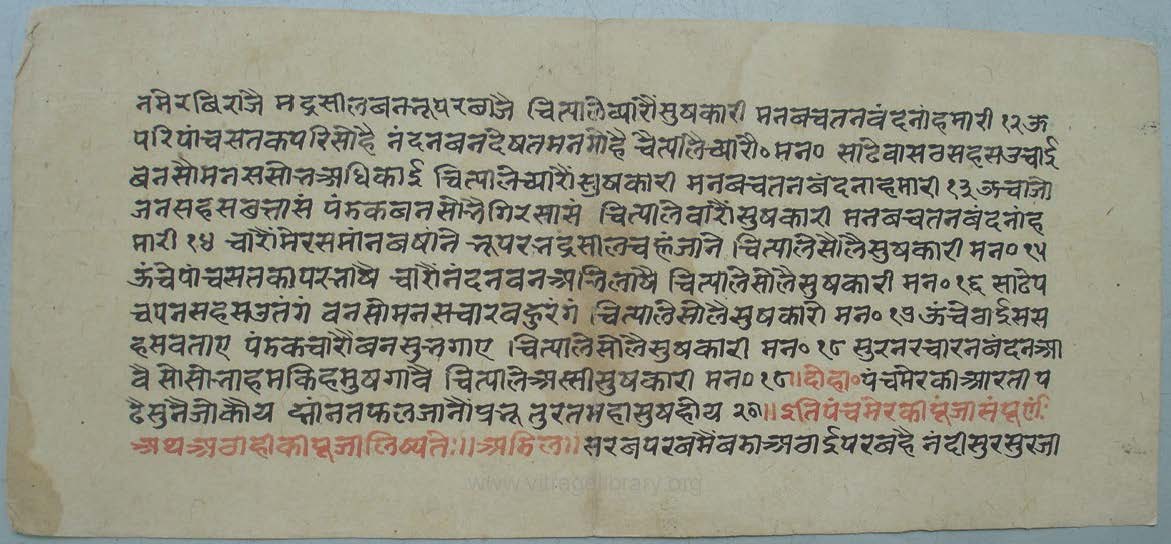 नमेरबिराजै भद्रसालबनभूपरबाजै चित्यालैच्यारौंसुषकारी मनबचतनबंदनांहमारी १२ ऊ
परिपांचसतकपरिसोहै नंदनबनदेषतमनमोहै चैत्यालैच्यारौं० मन० साढेबासठसहसउचाई
बनसौमनससोभअधिकाई चित्यालैच्यारौंसुषकारी मनबचतनबंदनाहमारी १३ ऊचाजो
जनसहसछत्तीसं पंडकबनसोभैगिरसीसं चित्यालैचारौंसुषकारी मनबचतनबंदनांह
मारी १४ चारौंमेरसमांनबषांनै भूपरभद्रसालचहुंजानै चित्यालैसोलैसुषकारी मन० १५
ऊंचेपांचसतकापरभाषै चारौंनंदनवनअभिलाषै चित्यालैसोलैसुषकारी मन० १६ साढेप
चपनसहसउतंगं वनसोमनसचारबहुरंगं चित्यालैसोलैसुषकारी मन० १७ ऊंचेठाईसस
हसबताए पंडकचारौंबनसुभगाए चित्यालैसोलैसुषकारी मन० १८ सुरनरचारनबंदनआ
वै सोसोभाहमकिहमुषगावै चित्यालैअस्सीसुषकारी मन० १९॥दोहा॰पंचमेरकीआरती प
ढैसुनैजोकोय द्यांनतफलजानौंप्रभू तुरतमहासुषहोय २०॥इतिपंचमेरकीपूजासंपूर्णः
अथअठाहीकीपूजालिष्यते॥अडिल॥सरबपरबमैंबडोअठाईपरबहै नंदीसुरसुरजा
www.vitragelibrary.org